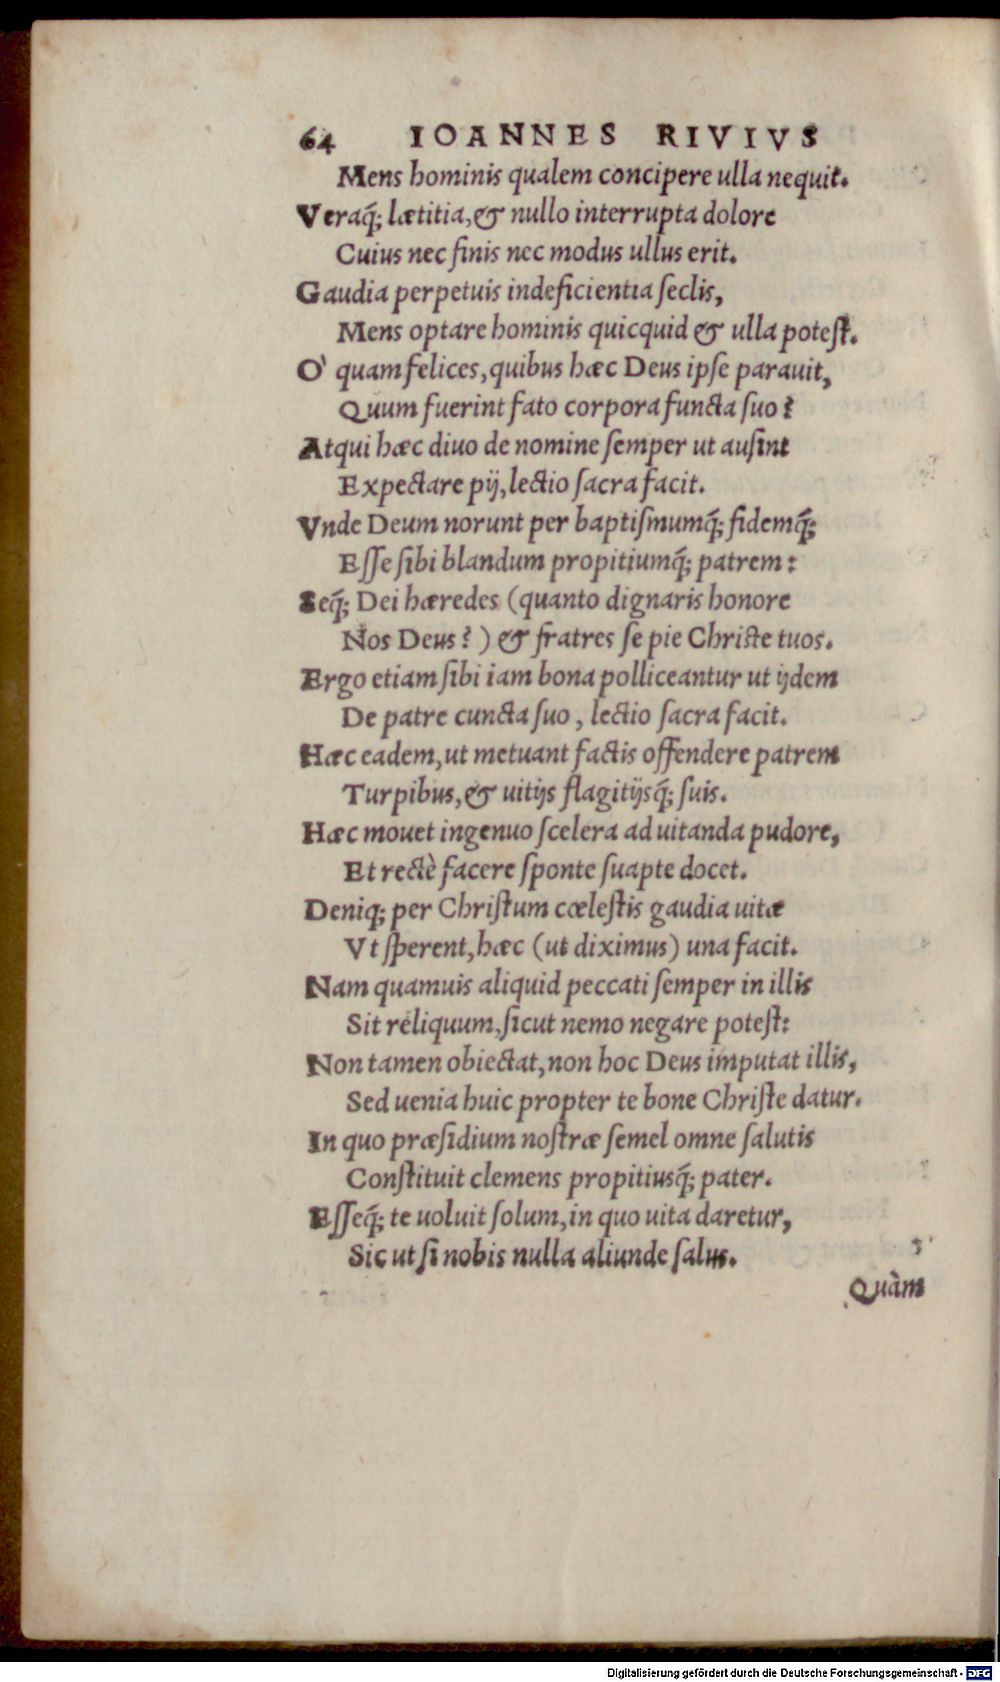 64 IOANNES RIVIVS
Mens hominis qualem concipere ulla nequit.
Veraq́; lætitia, & nullo interrupta dolore
Cuius nec finis nec modus ullus erit.
Gaudia perpetuis indeficientia ſeclis,
Mens optare hominis quicquid & ulla poteſt.
O` quam felices, quibus hæc Deus ipſe parauit,
Quum fuerint fato corpora functa ſuo?
Atqui hæc diuo de nomine ſemper ut auſint
Expectare pij, lectio ſacra facit.
Vnde Deum norunt per baptiſmumq́; fidemq́;
Eſſe ſibi blandum propitiumq́; patrem:
Seq́; Dei hæredes (quanto dignaris honore
Nos Deus?) & fratres ſe pie Chriſte tuos.
Ergo etiam ſibi iam bona polliceantur ut ijdem
De patre cuncta ſuo, lectio ſacra facit.
Hæc eadem, ut metuant factis offendere patrem
Turpibus, & uitijs flagitijsq́; ſuis.
Hæc mouet ingenuo ſcelera ad uitanda pudore,
Et rectè facere ſponte ſuapte docet.
Deniq; per Chriſtum cœleſtis gaudia uitæ
Vt ſperent, hæc (ut diximus) una facit.
Nam quamuis aliquid peccati ſemper in illis
Sit reliquum, ſicut nemo negare poteſt:
Non tamen obiectat, non hoc Deus imputat illis,
Sed uenia huic propter te bone Chriſte datur.
In quo præſidium noſtræ ſemel omne ſalutis
Conſtituit clemens propitiusq́; pater.
Eſſeq́; te uoluit ſolum, in quo uita daretur,
Sic ut ſi nobis nulla aliunde ſalus.
Quàm
Digitalisierung gefördert durch die Deutsche Forschungsgemeinschaft - DFG